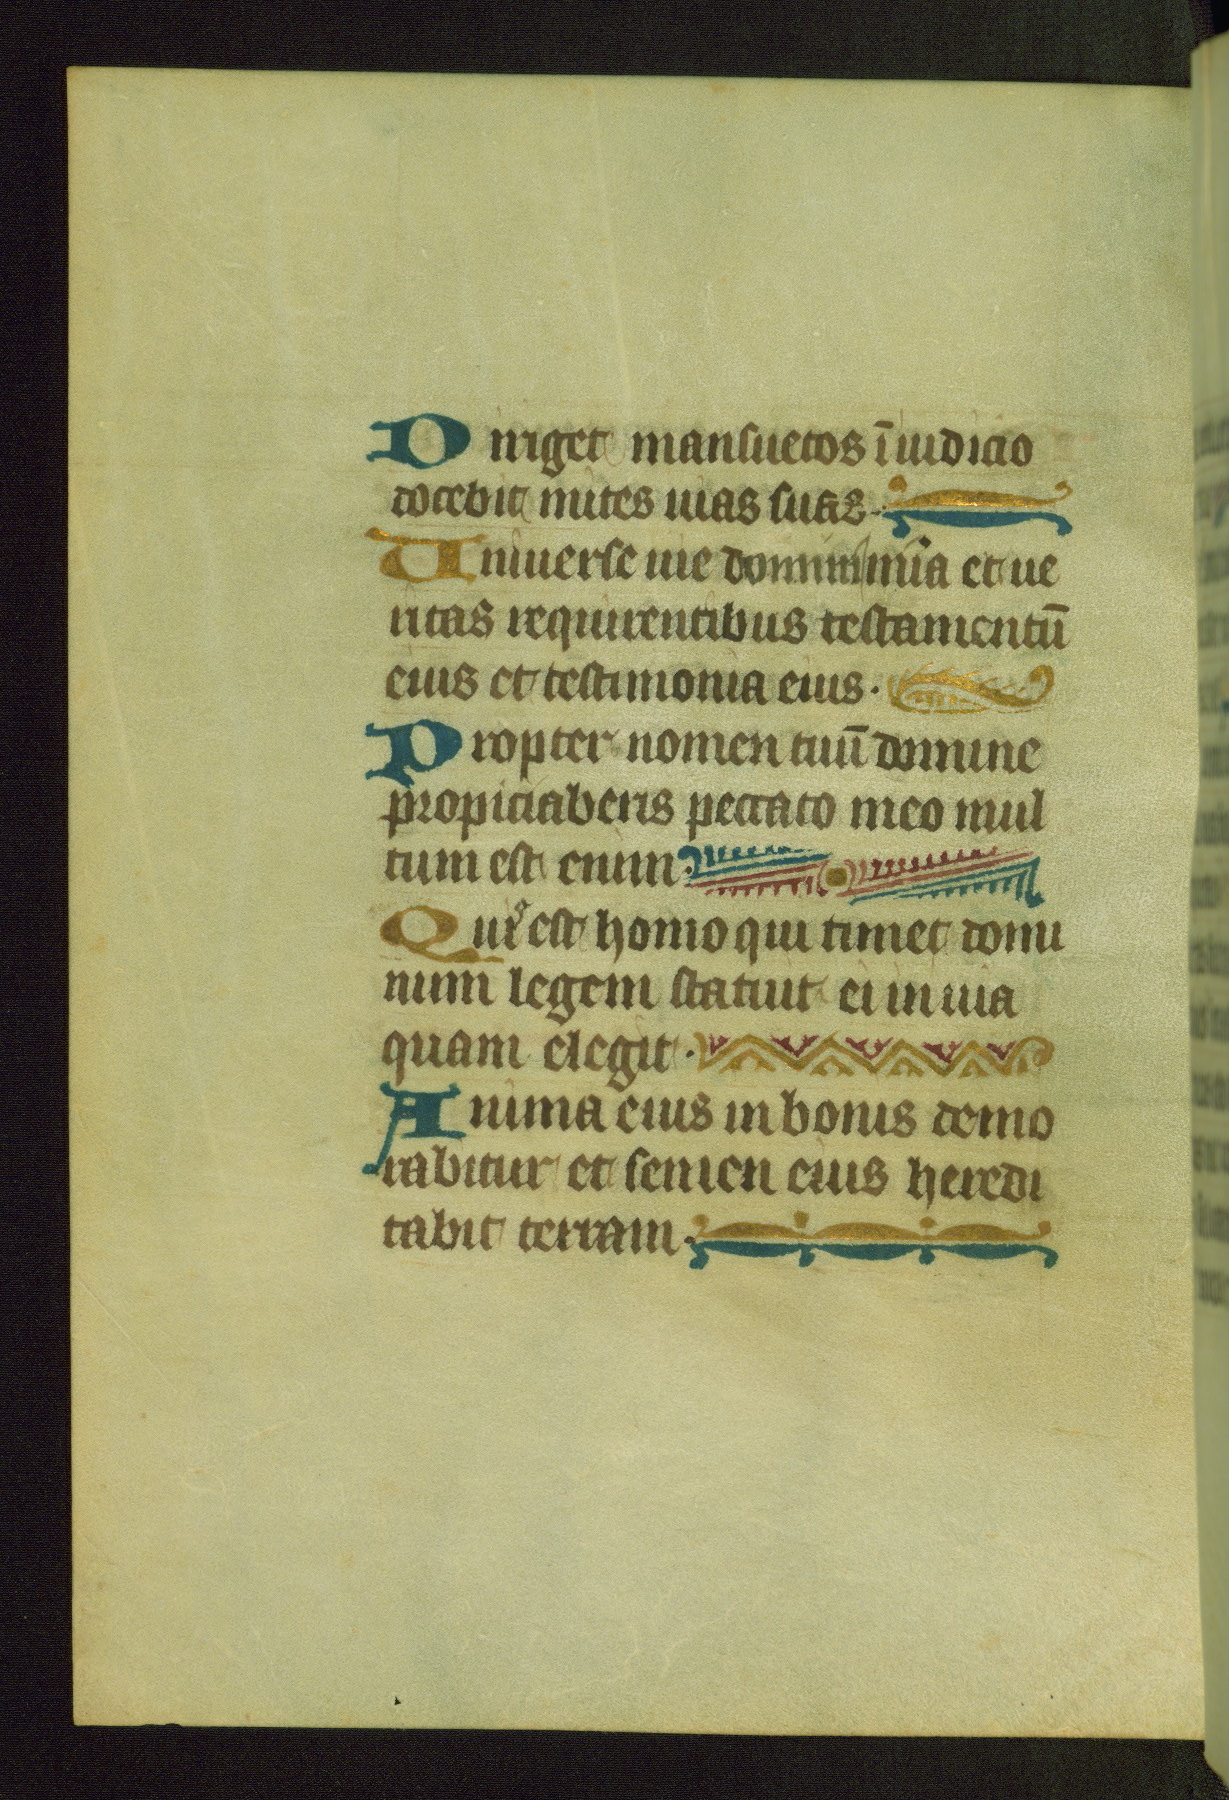 Diriget mansuetos ī iudicio
docebit mites uias suas.
Uniuerse uie domini mīa et ue
ritas requirentibus testamentū
eius et testimonia eius.
Propter nomen tuū domine
propiciaberis peccato meo mul
tum est enim.
Quis est homo qui timet domi
num legem statuit ei in uia
quam elegit.
Anima eius in bonis demo
rabitur et semen eius heredi
tabit terram.